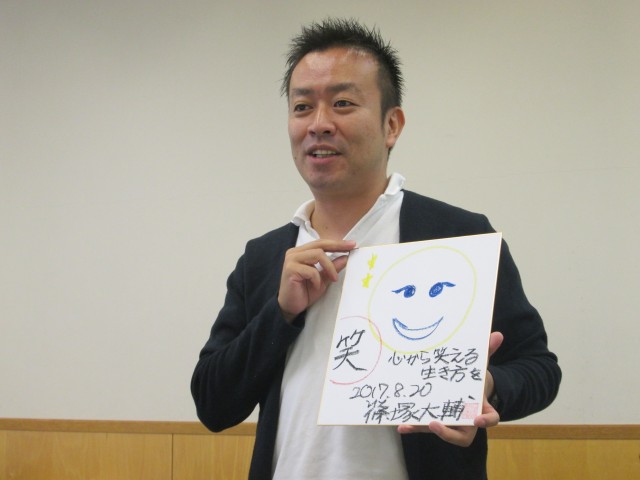 笑
心から笑える
生き方を
2017.8.20
篠塚大輔